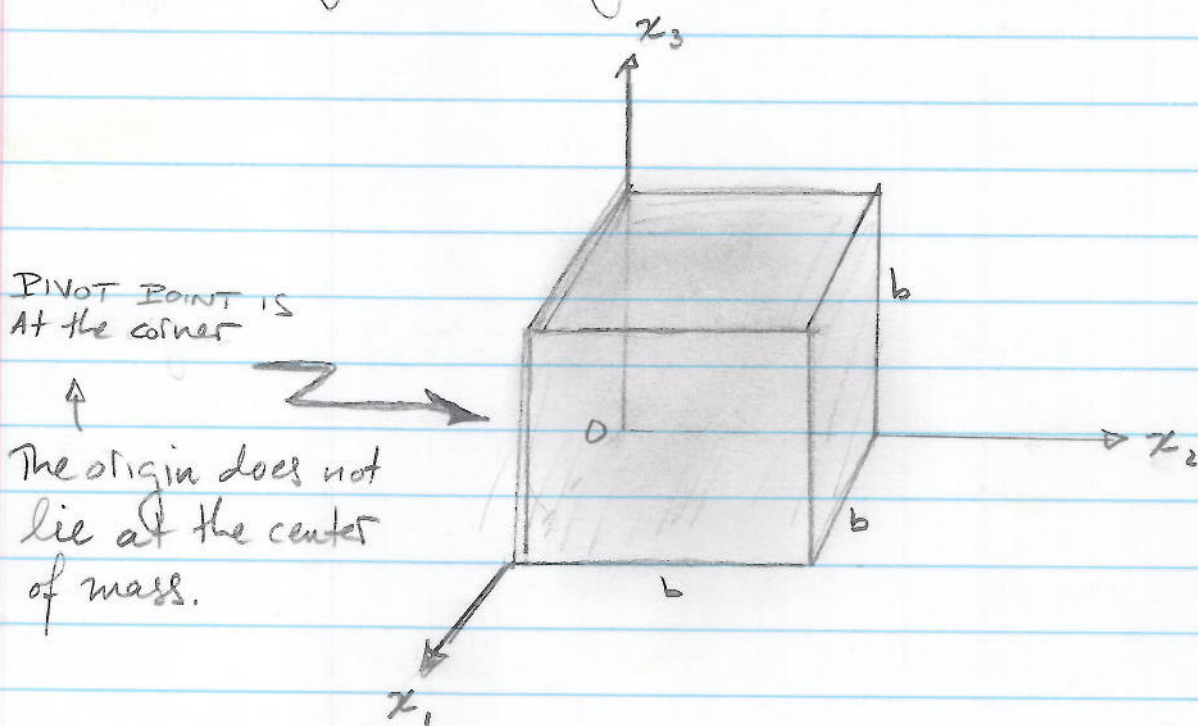 x₃
PIVOT POINT IS
At the corner
b
The origin does not
lie at the center
of mass.
O
x₂
b
b
x₁